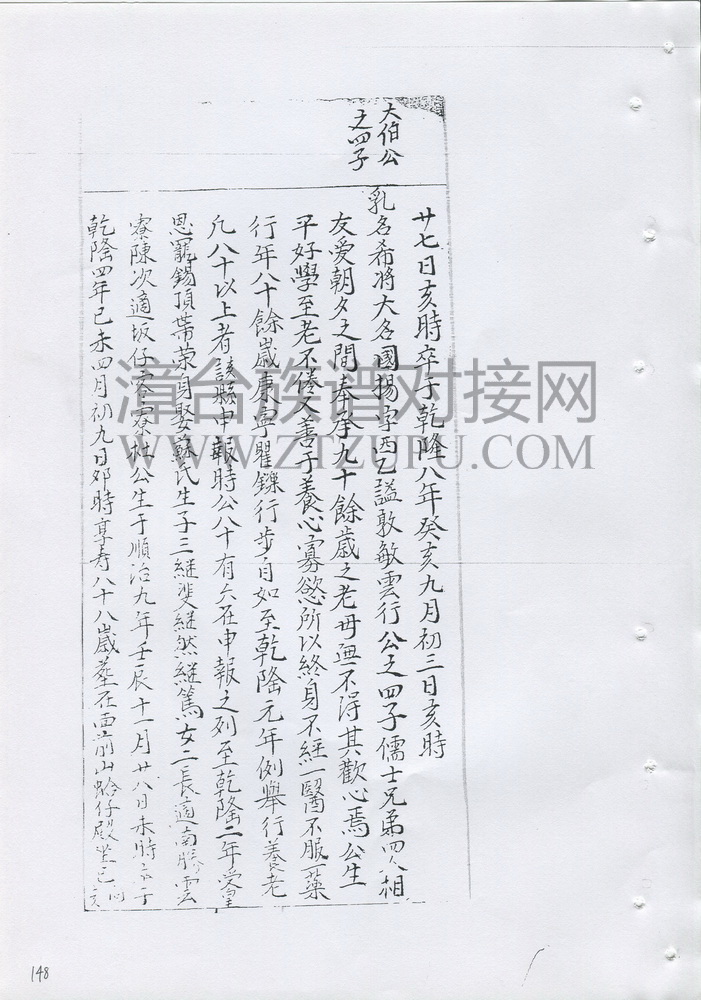 大伯公
之四子
廿七日亥時卒于乾隆八年癸亥九月初三日亥時
乳名希將大名國揚字西乙謚敦敏雲行公之四子儒士兄弟四人相
友愛朝夕之間奉承九十餘歲之老母無不得其歡心焉公生
平好學至老不倦又善于養心寡慾所以終身不經一醫不服一藥
行年八十餘歲康寧矍鑠行步自如至乾隆元年例舉行養老
凢八十以上者該縣申報時公八十有六在申報之列至乾隆二年受皇
恩寵錫頂帯荣身娶蘇氏生子三継斐継然継篤女二長適南勝雲
寮陳次適坂仔寮杜公生于順治九年壬辰十一月廿八日未時卒于
乾隆四年己未四月初九日卯時享寿八十八歲葬在面前山蛤仔殿坐巳向亥
漳台族谱对接网
WWW.ZTZUPU.COM
148